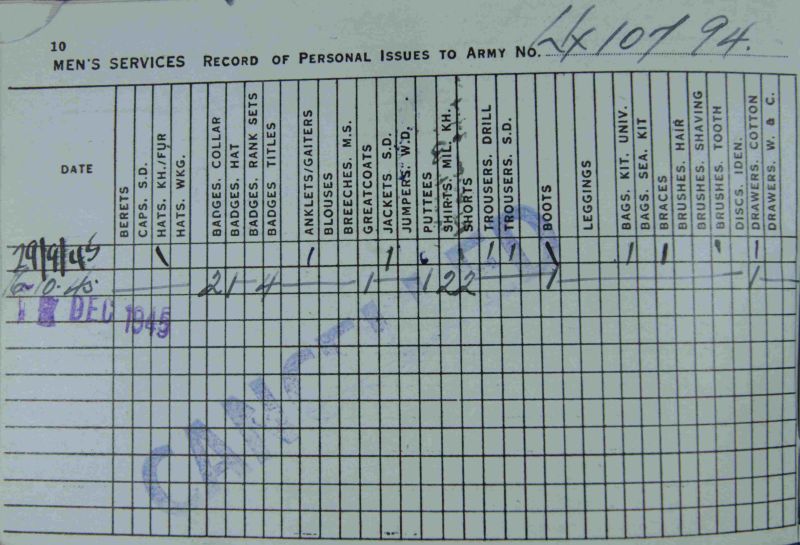 10
MEN'S SERVICES RECORD OF PERSONAL ISSUES TO ARMY NO. 10794.
DATE
BERETS
CAPS. S.D.
HATS. KH./FUR
HATS. WKG.
BADGES. COLLAR
BADGES. HAT
BADGES. RANK SETS
BADGES TITLES
ANKLETS/GAITERS
BLOUSES
BREECHES. M.S.
GREATCOATS
JACKETS S.D.
JUMPERS. W.D.
PUTTEES
SHIRTS. MIL. KH.
SHORTS
TROUSERS. DRILL
TROUSERS. S.D.
BOOTS
LEGGINGS
BAGS. KIT. UNIV.
BAGS. SEA. KIT
BRACES
BRUSHES. HAIR
BRUSHES. SHAVING
BRUSHES. TOOTH
DISCS. IDEN.
DRAWERS. COTTON
DRAWERS. W. & C.
29/9/45 1 1 1 1 1 1 1 1 1
21 4 1 1 22 1 1
DEC 1945
CANCELLED